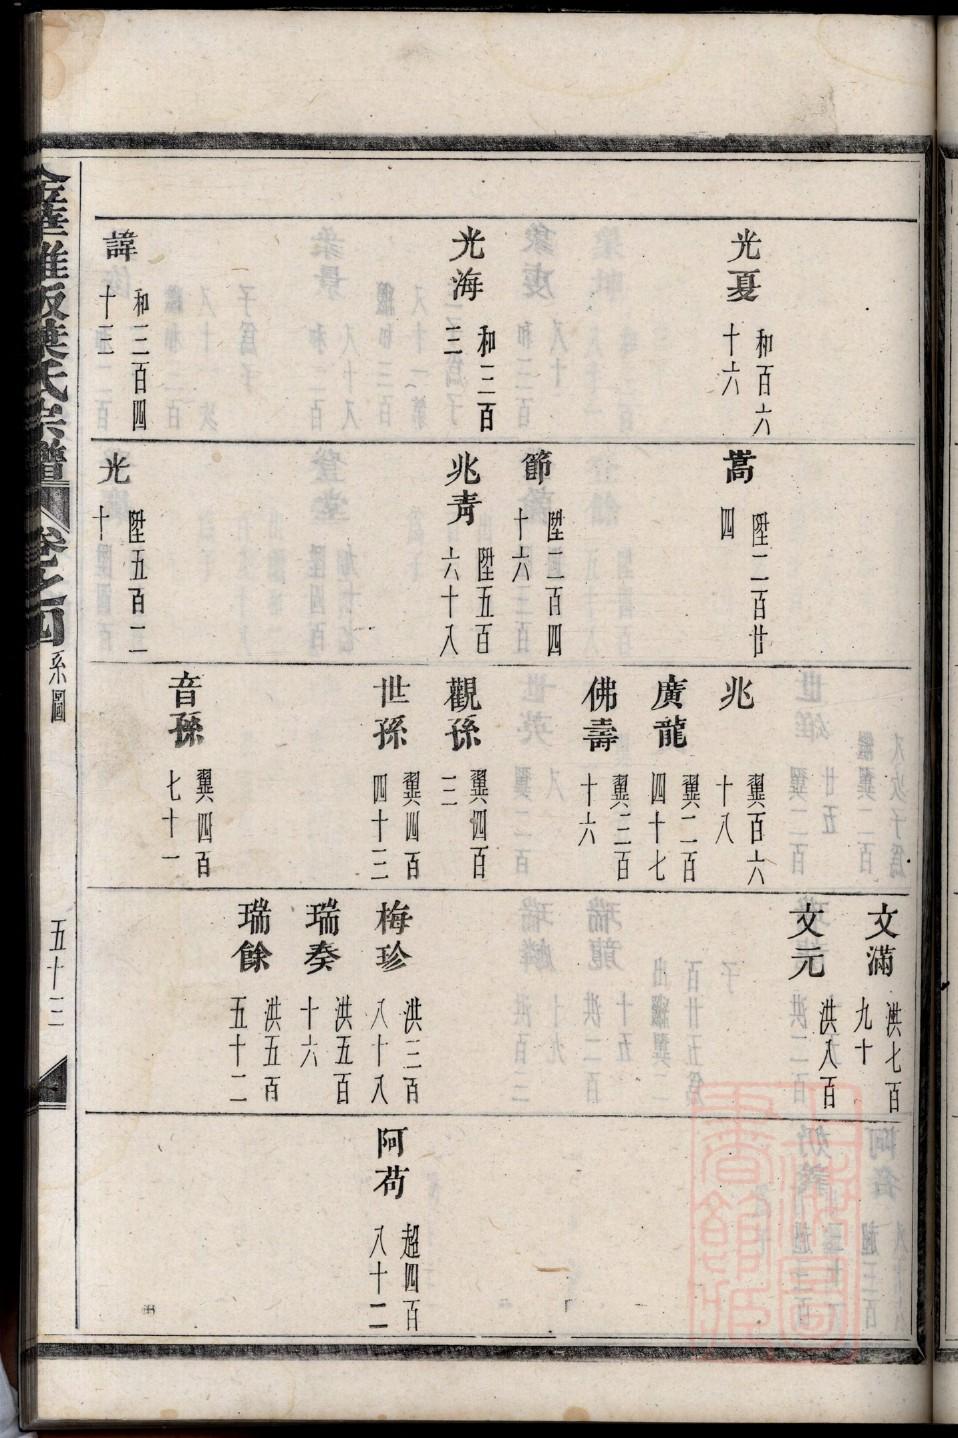 光夏
和百六
十六
光海
和三百
三
諱
和三百四
十三
嵩
陞二百廿
四
節
陞二百四
十六
兆青
陞五百
六十八
光
陞五百二
十
兆
翼百六
十八
廣龍
翼二百
四十七
佛壽
翼三百
十六
觀孫
翼四百
三
世孫
翼四百
四十三
音孫
翼四百
七十一
文滿
洪七百
九十
文元
洪八百
梅珍
洪三百
八十八
瑞奏
洪五百
十六
瑞餘
洪五百
五十二
阿苟
超四百
八十二
葉氏宗譜
卷之四
系圖
五十三